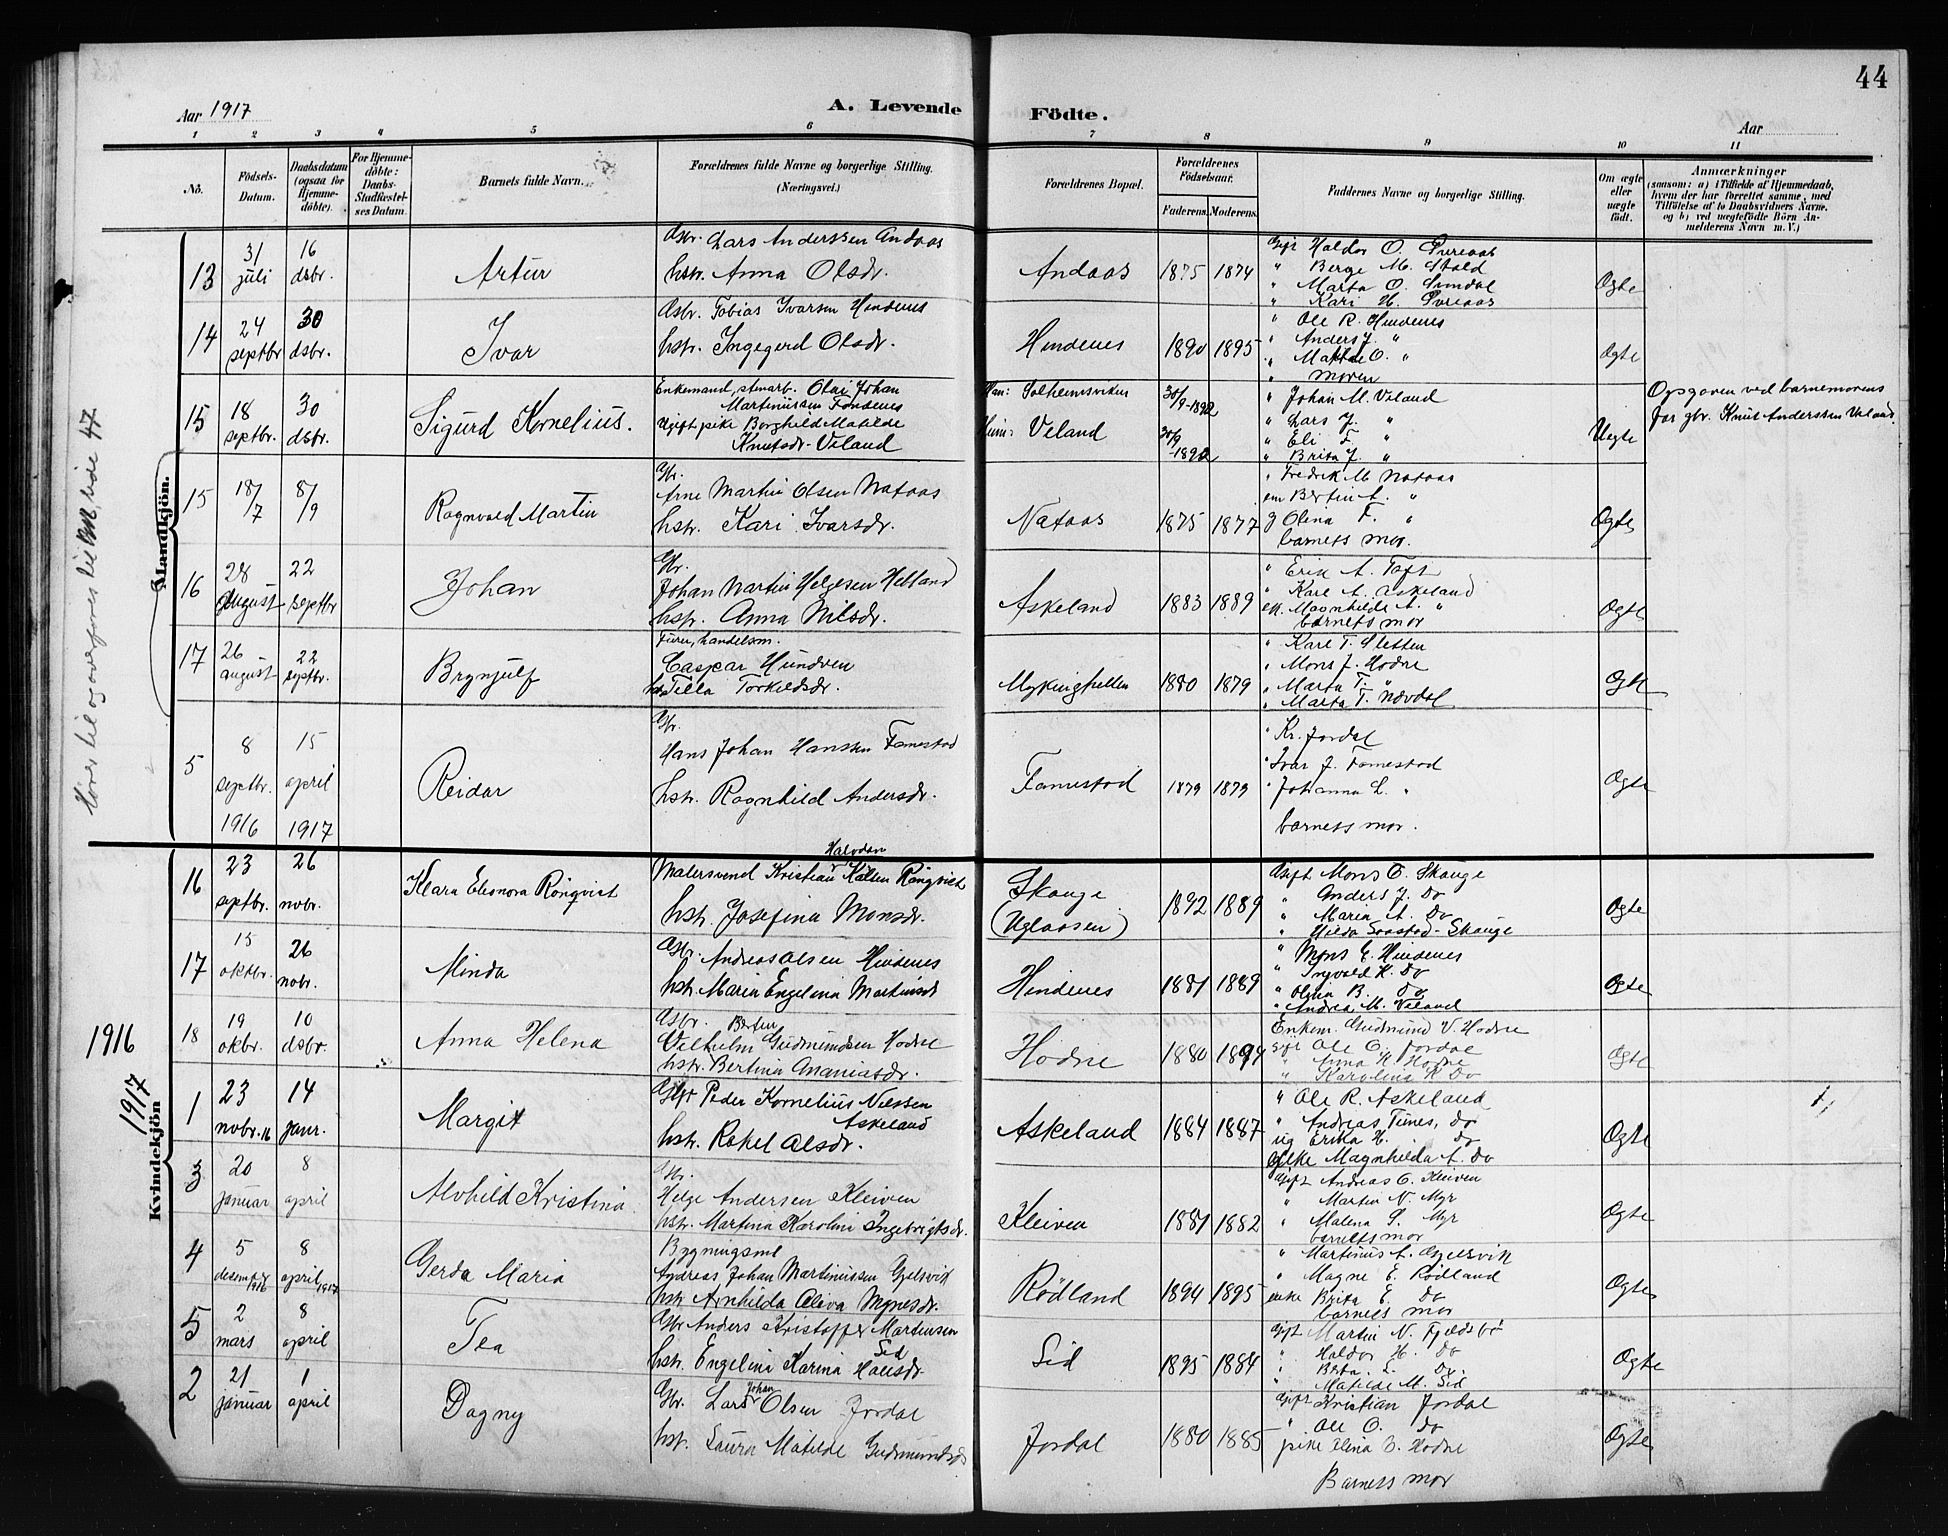 44
Aar 1917
A. Levende Födte.
Aar
1 2 3 4 5 6 7 8 9 10 11
No.
Födsels-Datum.
Daabsdatum (ogsaa for Hjemme-döbte).
For Hjemme-döbte: Daabs-Stadfæstel-ses Datum.
Barnets fulde Navn.
Forældrenes fulde Navne og borgerlige Stilling. (Næringsvei.)
Forældrenes Bopæl.
Forældrenes Födselsaar.
Faderens. Moderens.
Faddernes Navne og borgerlige Stilling.
Om ægte eller uægte födt.
Anmærkninger
(saasom: a) i Tilfælde af Hjemmedaab, hvem der har forrettet samme, med Tilföielse af to Daabsvidners Navne, og b) ved uægtefödte Börn An-melderens Navn m. V.)
Mandkjön.
13 31 juli 16 dsbr. Artur
Gbr. Lars Anderssen Andaas
hstr. Anna Olsdr.
Andaas 1875 1874
Gift Haldor O.
" Berge M.
" Marta O.
" Kari H.
Ogte
14 24 septbr 30 dsbr. Ivar
Gbr. Tobias Ivarsen Hindenes
hstr. Ingegerd Olsdr.
Hindenes 1890 1895
" Ole R. Hindenes
" Anders J. "
" O. "
" Moren
Ogte
15 18 septbr. 30 dsbr. Sigurd Kornelius.
Enkemand, stenarb. Olai Johan
Martinussen
Ugift pike Borghild Matilde
Knutsdr. Veland
Han: Solheimsviken 30/9-1892
Hun: Veland 30/9-1892
" Johan M. Veland
" Lars J. "
" Eli F. "
" Brita J. "
Uegte
Opgaven ved barnemorens
far gbr. Knut Anderssen Veland.
15 18/7 8/9 Ragnvald Martin
Gbr.
Arne Martin Olsen Nataas
hstr. Kari Ivarsdr.
Nataas 1875 1877
" Fredrik M. Nataas
em Bertin A. "
g Olina F. "
barnets mor.
Ogte
16 28 august 22 septbr Johan
Gbr.
Johan Martin Helgesen Helland
hstr. Anna Nilsdr.
Askeland 1883 1889
" Erik A. Toft
" Karl A. Askeland
Magnhilde A. "
barnets mor
Ogte
17 26 august 22 septbr. Brynjulf
handelsm.
Caspar Hundven
Tella Torkildsdr.
Mykinghellen 1880 1879
" Karl T. Sletten
" Mons J. Hodne
" Marta T. "
" Marta T. Nævdal
Ogte
5 8 septbr. 1916 15 april 1917 Reidar
Gbr.
Hans Johan Hanssen Famestad
hstr. Ragnhild Andersdr.
Famestad 1879 1879
" Kr. Jordal
" Ivar J. Famestad
" Johanna L. "
barnets mor.
Ogte
Kvindekjön
16 23 septbr. 26 novbr. Klara Eleonora Rönqvist
Halvdan
Malersvend Kristian Rönqvist
hstr. Josefina Monsdr.
Skauge 1892 1889
(Uglaasen)
Gift Mons O. Skauge
" Anders J. Do
" Maria A. Do
" Hilda Skauge
Ogte
17 15 oktbr. 26 nobr. Minda
Gbr. Andreas Olsen Hindenes
hstr. Maria Engelina Martinusd
Hindenes 1881 1889
" Mons E. Hindenes
" Ingvald K. Do
" Olina B. Do
" Andrea M. Veland
Ogte
1916
18 19 okbr. 10 dsbr. Anna Helena
Gbr. Bertin
Vilhelm Gudmundsen Hodne
hstr. Bertina Ananiasdr.
Hodne 1880 1894
Enkem. Gudmund V. Hodne
Gift Ole O. Jordal
" Anna H. Hodne
" Karolina K. Do
Ogte
1917
1 23 nobr. 16 14 janr. Margit
Gbr Peder Kornelius Nilssen
Askeland
hstr. Rakel Olsdr.
Askeland 1884 1887
" Ole R. Askeland
" Andreas Tunes, Do
ug Erika H. Do
Magnhilda A. Do
Ogte
3 20 januar 8 april Alvhild Kristina.
Gbr.
Helge Andersen Kleiven
hstr. Martina Karolini Ingebrigtsdr.
Kleiven 1881 1882
Gift Andreas O. Kleiven
" Martin N. Myr
" Malena S. Myr
barnets mor
Ogte
4 5 desember 1916 8 april 1917 Gerda Maria
Andreas Johan Martinussen Gjelsvik
hstr Arnhilda Oliva Mgnesdr.
Rödland 1894 1895
" Martinus A. Gjelsvik
" Magne E. Rödland
enke Brita E. Do
barnets mor
Ogte
5 2 mars 8 april Tea
Gbr Anders Kristoffer Martinsen
Sid
hstr. Engelina Karina
Sid 1895 1884
Gift Martin N. Fjeldsbö
" Haldor H. Do
" Berta L. Do.
" Matilde M. Sid
Ogte
2 21 januar 1 april Dagny
Gbr. Lars Johan Olsen Jordal
hstr. Laura Matilde Gudmundsd
Jordal 1880 1885
Gift Kristian Jordal
" Ole O. Do
pike Elina B. Hodne
Barnets mor
Ogte